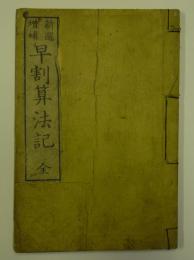 新選
増補
早割算法記 全